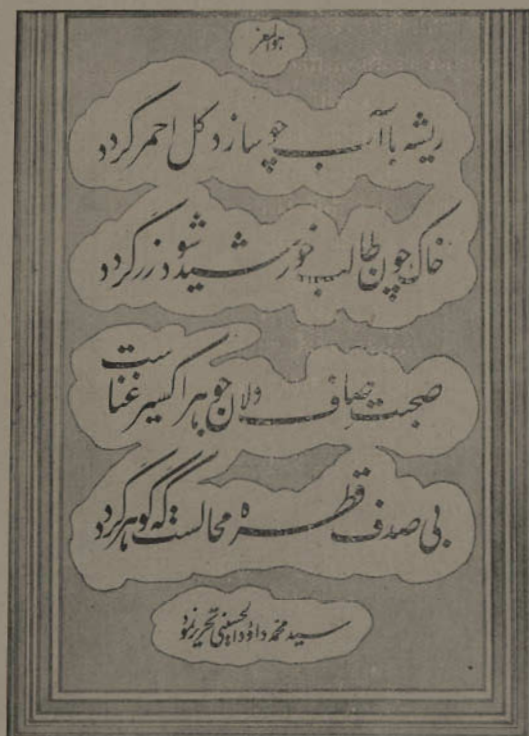 هوالمعز
ریشه با آب چو سازد کل احمر گردد
خاک چون طالب خورشید شود زر گردد
صحبت صاف دلان جوهر اکسیر غناست
بی صدف قطره محالست که گوهر گردد
سید محمد داؤد الحسینی تحریر نمود